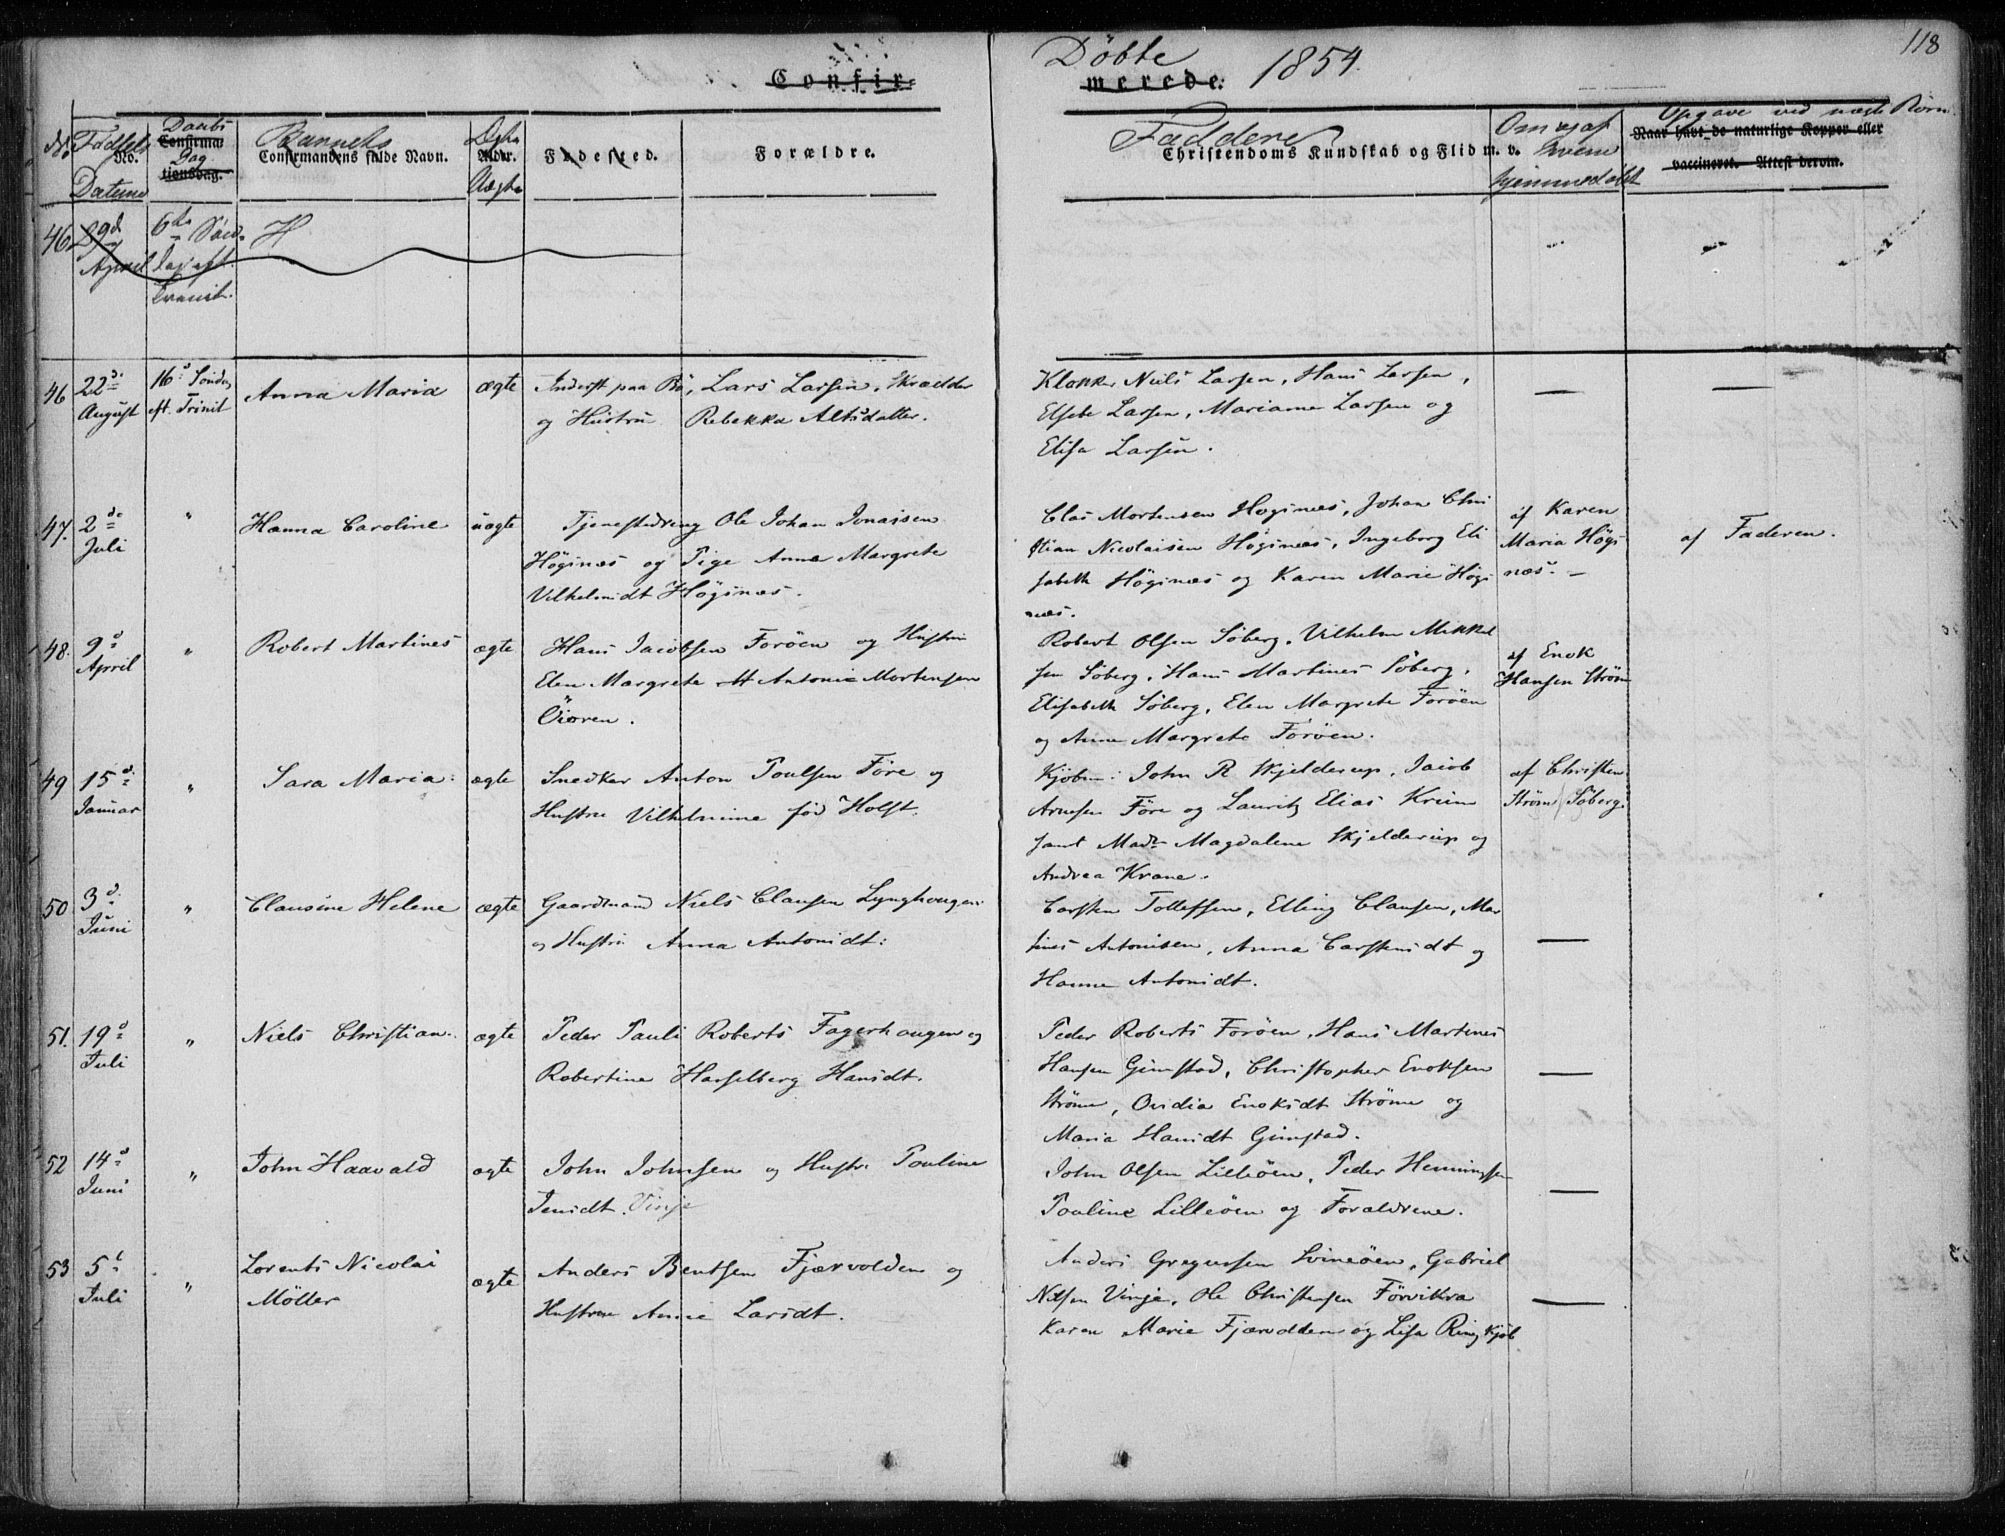 118
Döbte 1854.
Confir- merede.
No. Fødsels Datum
Daabs Dag
Confirma- tionsdag.
Barnets
Confirmandens fulde Navn.
Alder.
Fødested.
Forældre.
Faddere
Christendoms Kundskab og Flid m. v.
Om og af hvem hjemmedøbt
Opgave ved uægte Børn
Naar havt de naturlige Kopper eller vaccineret. Attest derom.
46 29d April 6te Sönd- dag eft. Trinit. H
46 22d August 16d Sönd. eft. Trinit Anna Maria ægte Lars Larsen, Skrædder
og Hustru Rebekka Altsdatter.
Klokker Niels Larsen, Hans Larsen,
Elsebe Larsen, Marianne Larsen og
Elisa Larsen.
—
—
47. 2de Juli " Hanna Caroline uægte Tjenestedreng Ole Johan Jonassen
Höginæs og Pige Anne Margrete
Vilhelmsdt Höginæs.
Clas Mortensen Höginæs, Johan Chri
stian Nicolaisen Höginæs, Ingeborg Eli
sabeth Höginæs og Karen Marie Högi
næs.
af Karen
Maria Högi
næs. –
af Faderen.
48. 9d April " Robert Martines ægte Hans Jacobsen Foröen og Hustru
Elen Margrete Antonie Mortensen
Öiøren.
Robert Olsen Söberg, Vilhelm Mikkel
sen Söberg, Hans Martines Söberg,
Elisabeth Söberg, Elen Margrete Foröen
og Anne Margrete Foröen.
af Enok
Hansen Ström
49 15d Januar " Sara Maria: ægte Snedker Anton Poulsen Före og
Hustru Vilhelmine fød Holst.
Kjöbm: John R Skjelderup, Jacob
Arnesen Före og Lauritz Elias Krüm
samt Madm Magdalene Skjelderup og
Andrea Krane.
af Christen
Ström / Söberg.
50 3d Juni " Clausine Helene ægte Gaardmand Niels Clausen Lynghougen
og Hustru Anna Antonidt:
Carsten Tollefsen, Elling Clausen, Mar
tines Antonisen, Anna Carstensdt og
Hanna Antonidt.
—
51. 19d Juli " Niels Christian. ægte Peder Pauli Roberts Fagerhaugen og
Robertine Hasselberg Hansdt.
Peder Roberts Foröen, Hans Martines
Hansen Gimstad, Christopher Enoksen
Ströme, Ovidia Enoksdt Ströme og
Maria Hansdt Gimstad.
—
52 14d Juni " John Haavald ægte John Johnsen og Hustr. Pouline
Jensdt. Vinje
John Olsen Lilleöen, Peder Henningsen
Pouline Lilleöen og Forældrene.
—
53 5t Juli " Lorents Nicolai
Möller ægte Anders Bentsen Fjærvolden og
Hustru Anne Larsdt.
Anders Gregussen Svineöen, Gabriel
Nilsen Vinje, Ole Christensen Förvikra
Karen Marie Fjærvolden og Lisa Ring Kjöb
—